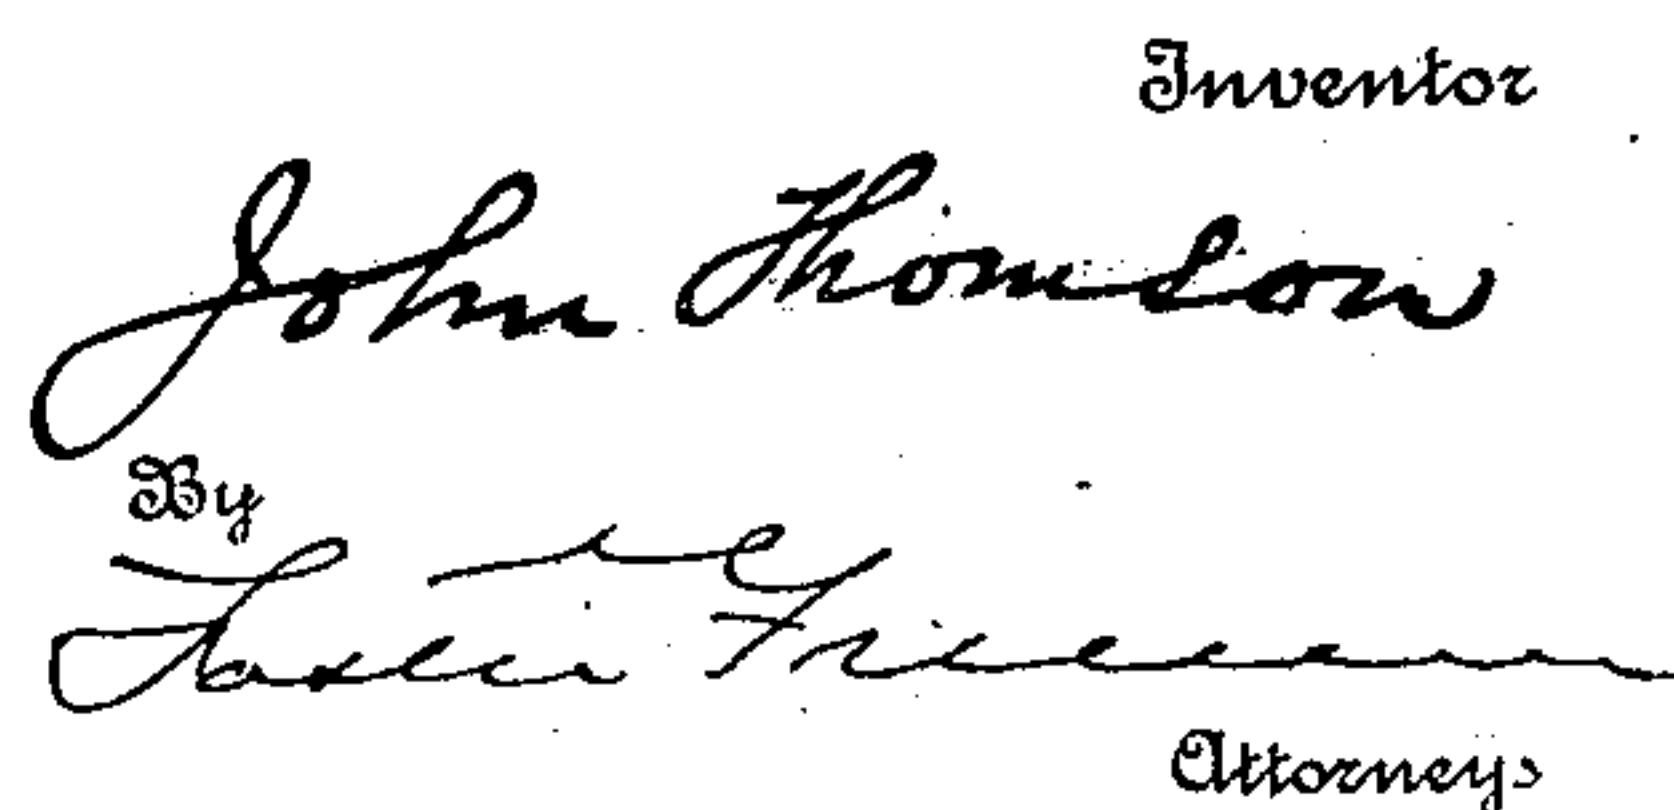 Inventor
John Thomson
By
Foster Freeman
Attorneys